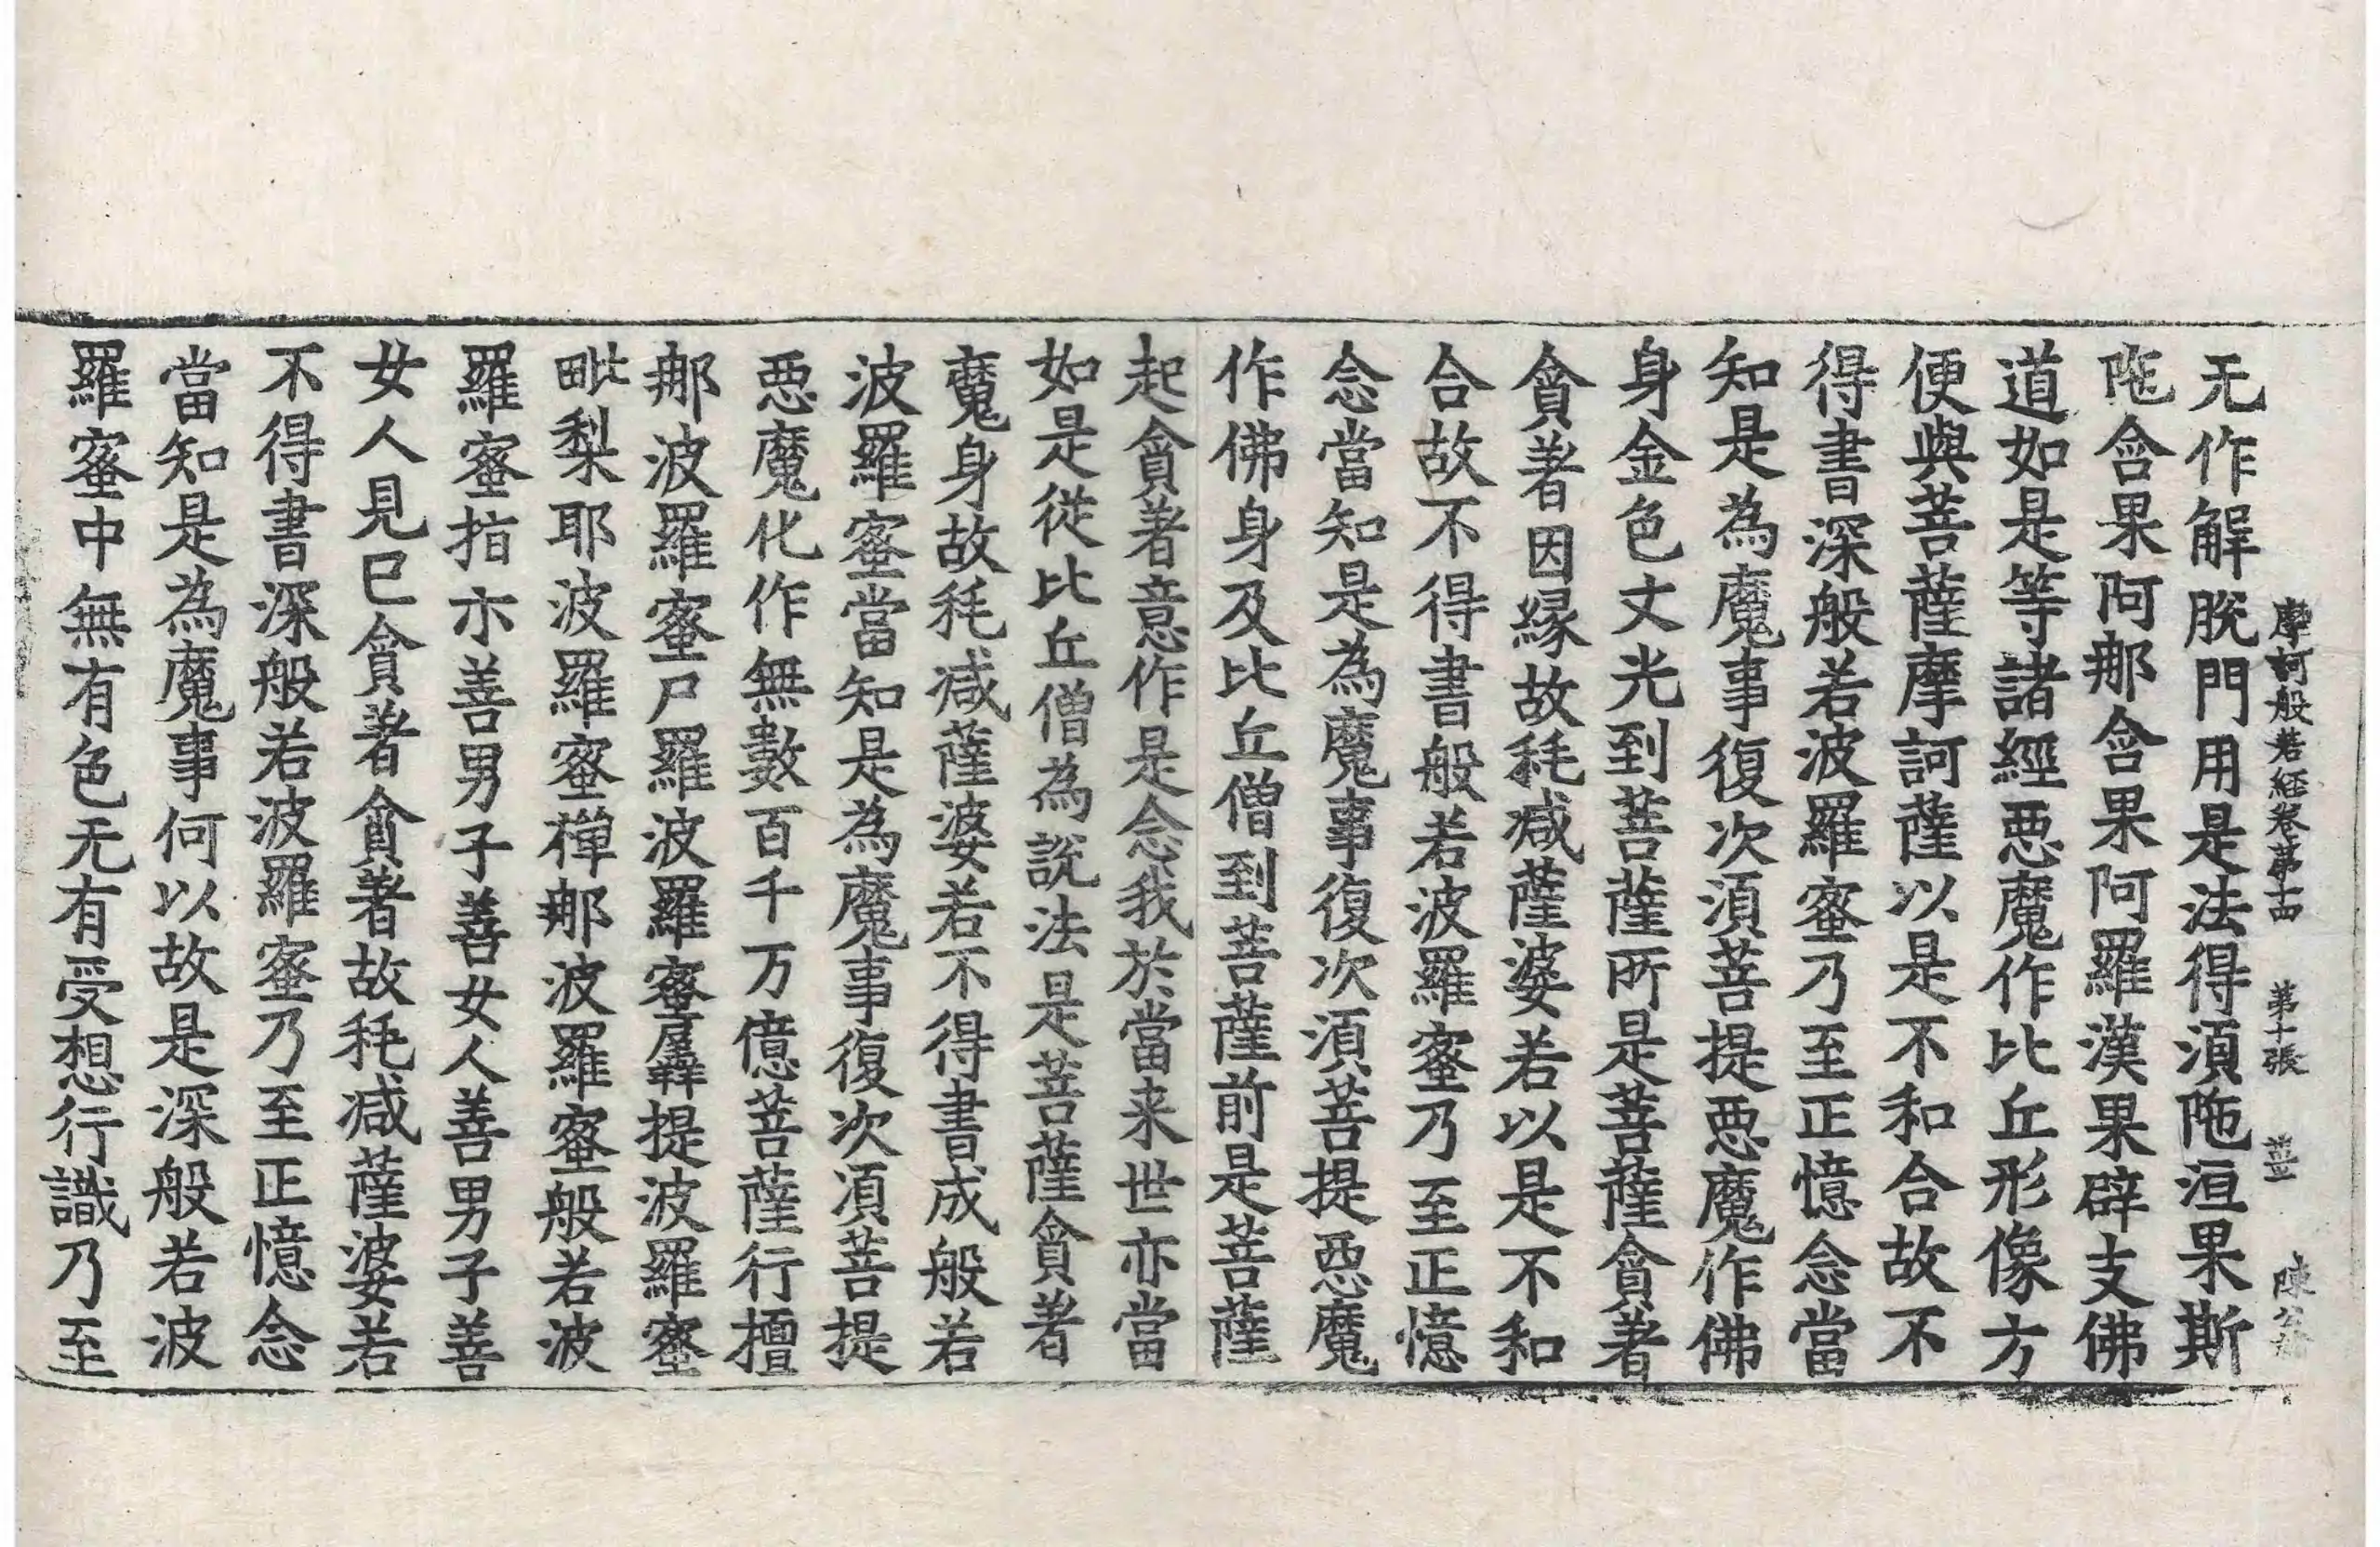 摩訶般若經卷第十四 第十張 薑 陳公
无作解脫門用是法得須陁洹果斯
陁含果阿那含果阿羅漢果辟支佛
道如是等諸經惡魔作比丘形像方
便與菩薩摩訶薩以是不和合故不
得書深般若波羅蜜乃至正憶念當
知是為魔事復次須菩提惡魔作佛
身金色丈光到菩薩所是菩薩貪著
貪著因緣故秏減薩婆若以是不和
合故不得書般若波羅蜜乃至正憶
念當知是為魔事復次須菩提惡魔
作佛身及比丘僧到菩薩前是菩薩
起貪著意作是念我於當来世亦當
如是從比丘僧為說法是菩薩貪著
魔身故秏減薩婆若不得書成般若
波羅蜜當知是為魔事復次須菩提
惡魔化作無數百千万億菩薩行檀
那波羅蜜尸羅波羅蜜羼提波羅蜜
毗梨耶波羅蜜禪那波羅蜜般若波
羅蜜指示善男子善女人善男子善
女人見已貪著貪著故秏減薩婆若
不得書深般若波羅蜜乃至正憶念
當知是為魔事何以故是深般若波
羅蜜中無有色无有受想行識乃至